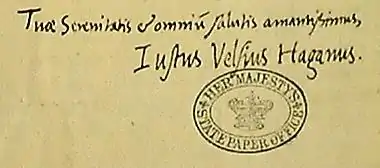 Tuæ Serenitatis & omniũ salutis amantissimus,
Iustus Velsius Haganus.
HER MAJESTYS
STATE PAPER OFFICE